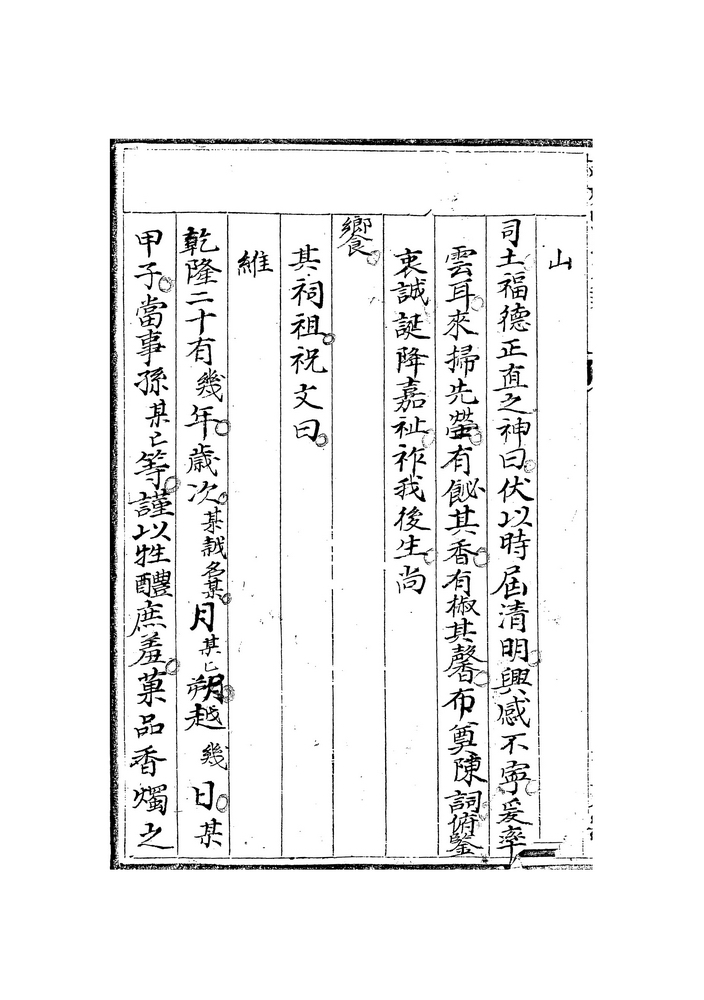 山
司土福德正直之神曰伏以時屆清明興感不寧爰率
雲耳來掃先塋有飶其香有椒其馨布奠陳詞俯鑒
衷誠誕降嘉祉祚我後生尚
饗
其祠祖祝文曰
維
乾隆二十有幾年歲次某越名某月某匕朔越幾日某
甲子當事孫某匕等謹以牲醴庶羞菓品香燭之